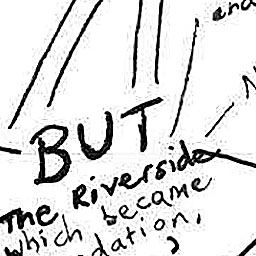 and
N
BUT
The Riverside
which became
dation,